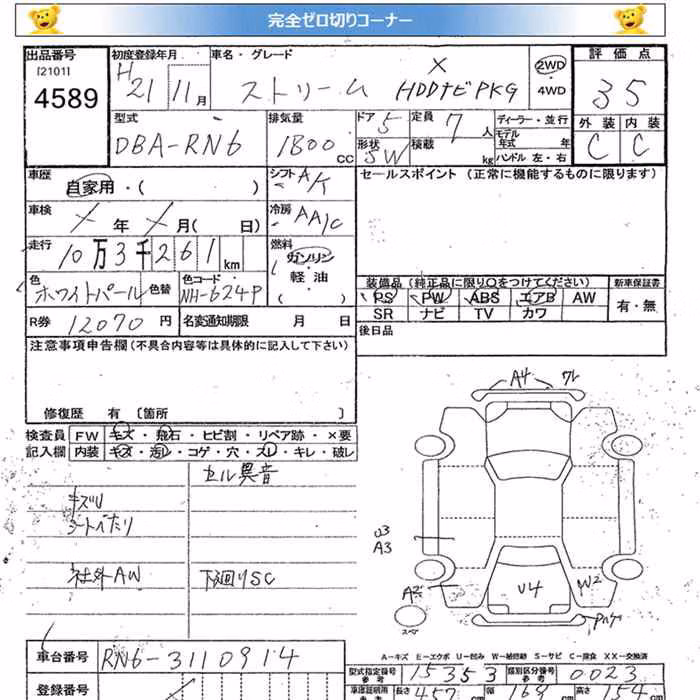 完全ゼロ切りコーナー
出品番号 初度登録年月 車名・グレード 評価点
[2101] H21 11月 ストリーム X HDDナビPKG 2WD ・ 4WD 35
4589
型式 排気量 ドア 5 定員 7人 ディーラー・並行 外装 内装
DBA-RN6 1800cc 形状 SW 積載 kg モデル年式 年 C C
ハンドル 左・右
車歴 自家用・( ) シフト セールスポイント (正常に機能するものに限ります)
車検 年 月( 日) 冷房 AAC
走行 10万3千261km 燃料 ガソリン ・ 軽油 ( )
色 ホワイトパール 色替 色コード NH-624P
装備品(純正品に限り○をつけてください) 新車保証書
PS PW ABS エアB AW 有・無
SR ナビ TV カワ
R券 12070円 名変通知期限 月 日 後日品
注意事項申告欄(不具合内容等は具体的に記入して下さい)
修復歴 有 [箇所 ]
検査員 FW キズ・飛石・ヒビ割・リペア跡・×要
記入欄 内装 キズ・汚レ・コゲ・穴・スレ・キレ・破レ
セル異音
キズU
シートへたり
社外AW 下廻りSC
A4 ワレ
U3
A3
A2 U4 W2
スペア
A-キズ E-エクボ U-凹み W-補修跡 S-サビ C-腐食 XX-交換済
車台番号 RN6-3110914
型式指定番号 参考 15353 類別区分番号 参考 0023
登録番号 長さ 457 幅 169 高さ 154